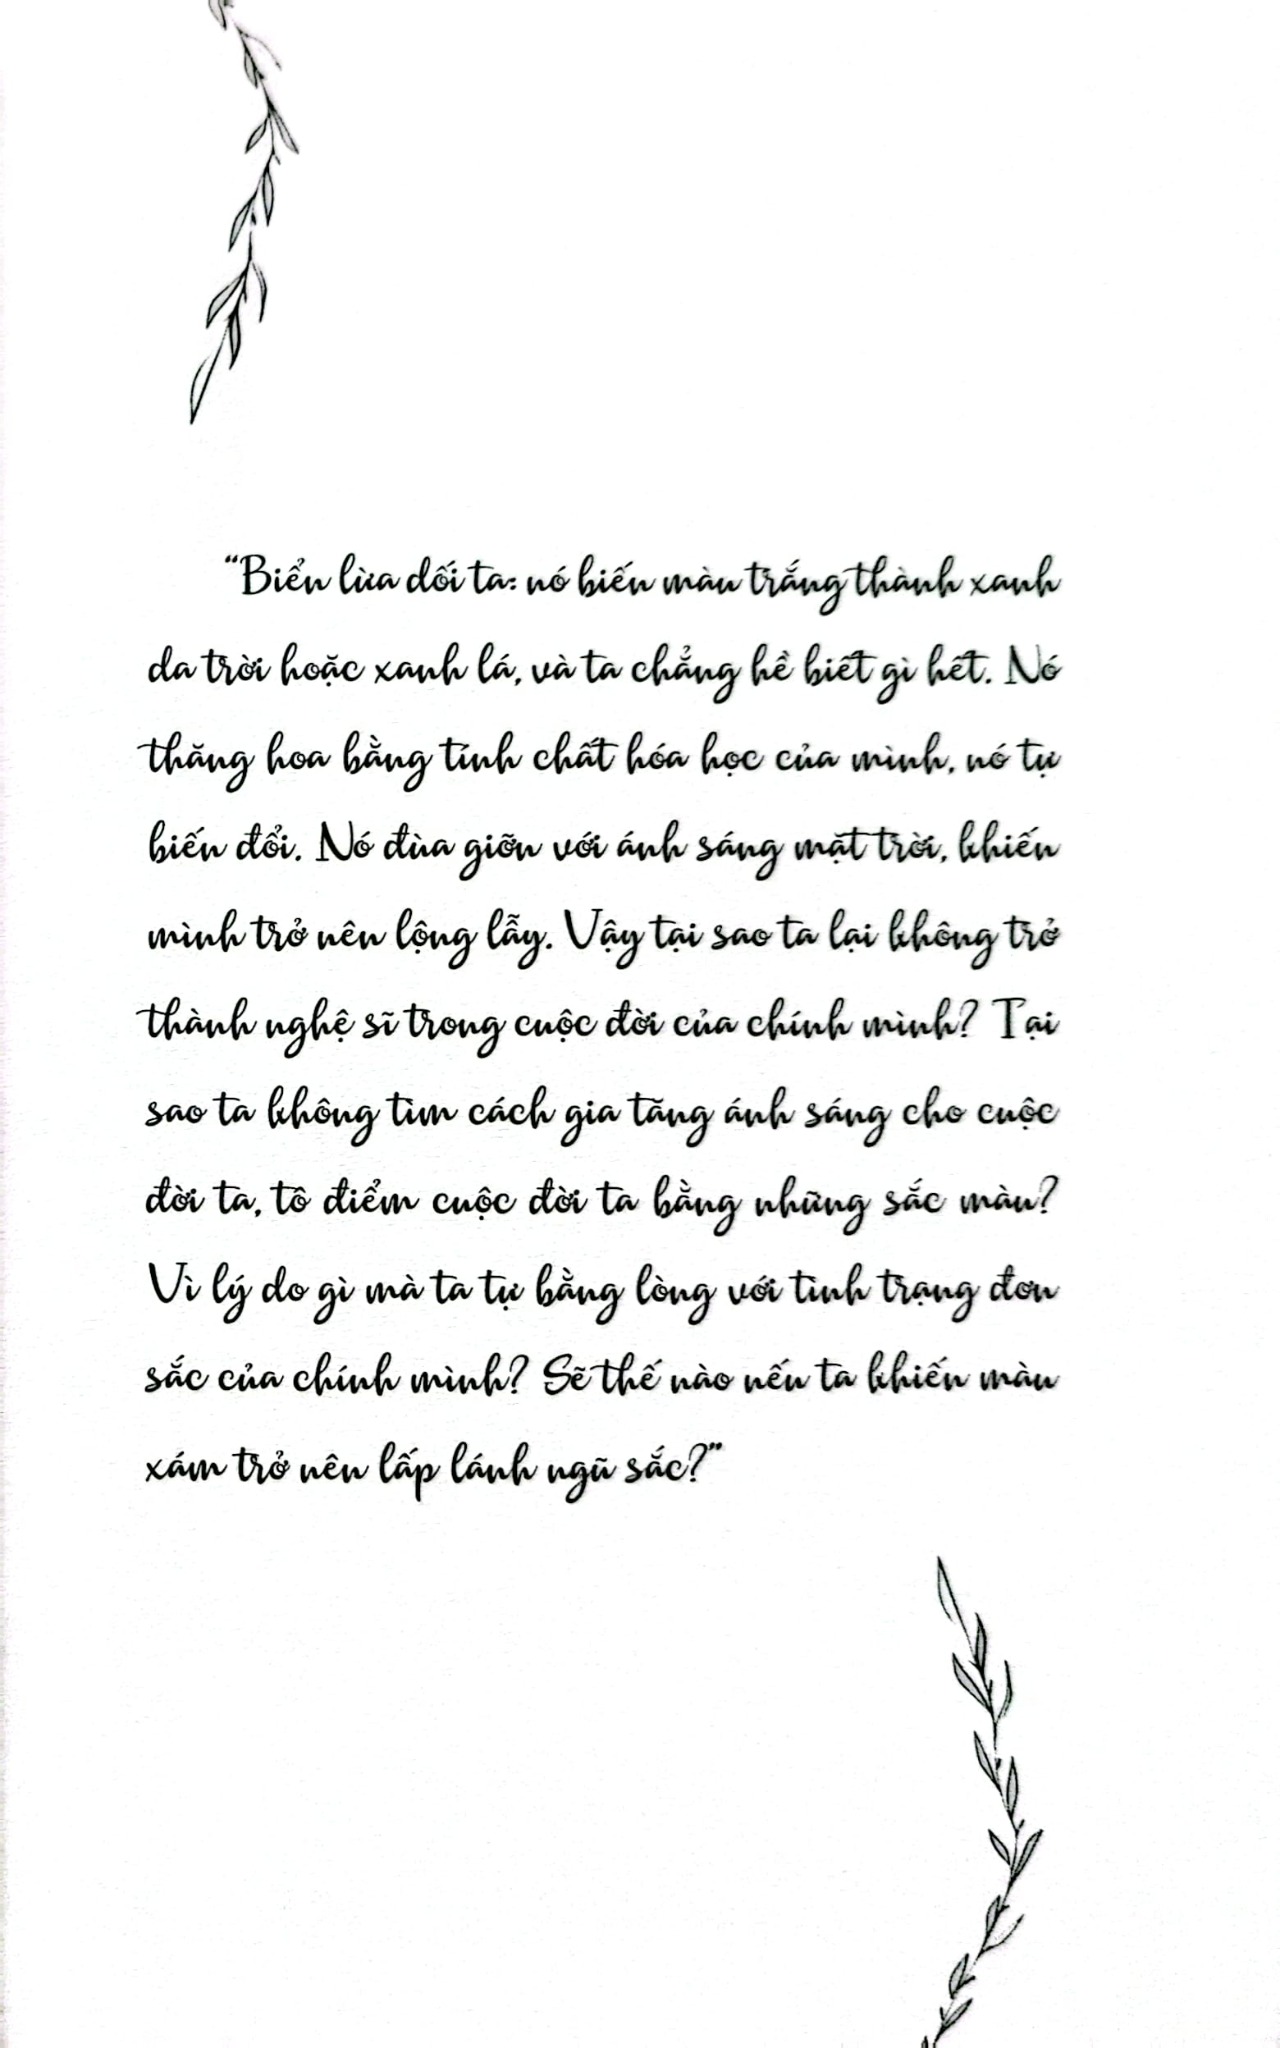 “Biển lừa dối ta: nó biến màu trắng thành xanh
da trời hoặc xanh lá, và ta chẳng hề biết gì hết. Nó
thăng hoa bằng tính chất hóa học của mình, nó tự
biến đổi. Nó đùa giỡn với ánh sáng mặt trời, khiến
mình trở nên lộng lẫy. Vậy tại sao ta lại không trở
thành nghệ sĩ trong cuộc đời của chính mình? Tại
sao ta không tìm cách gia tăng ánh sáng cho cuộc
đời ta, tô điểm cuộc đời ta bằng những sắc màu?
Vì lý do gì mà ta tự bằng lòng với tình trạng đơn
sắc của chính mình? Sẽ thế nào nếu ta khiến màu
xám trở nên lấp lánh ngũ sắc?”